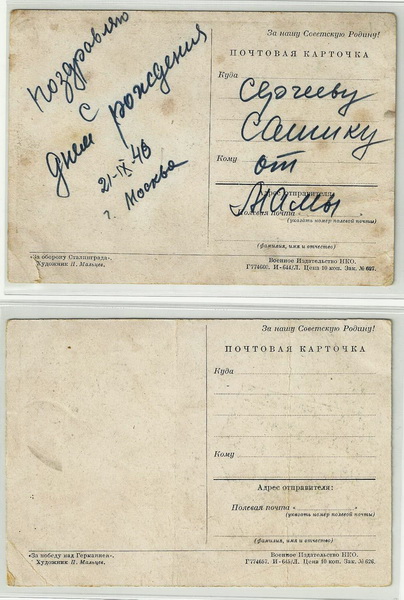 Поздравляю
с
днем рождения
21-IX-46
г. Москва
«За оборону Сталинграда».
Художник П. Мальцев.
За нашу Советскую Родину!
ПОЧТОВАЯ КАРТОЧКА
Куда
Сергееву
Сашику
Кому
от
Адрес отправителя:
Мамы
Полевая почта
(указать номер полевой почты)
(фамилия, имя и отчество)
Военное Издательство НКО.
Г774605. И-644/Л. Цена 10 коп. Зак. № 627.
За нашу Советскую Родину!
ПОЧТОВАЯ КАРТОЧКА
Куда
Кому
Адрес отправителя:
Полевая почта
(указать номер полевой почты)
(фамилия, имя и отчество)
«За победу над Германией».
Художник П. Мальцев.
Военное Издательство НКО.
Г774607. И-645/Л. Цена 10 коп. Зак. № 626.